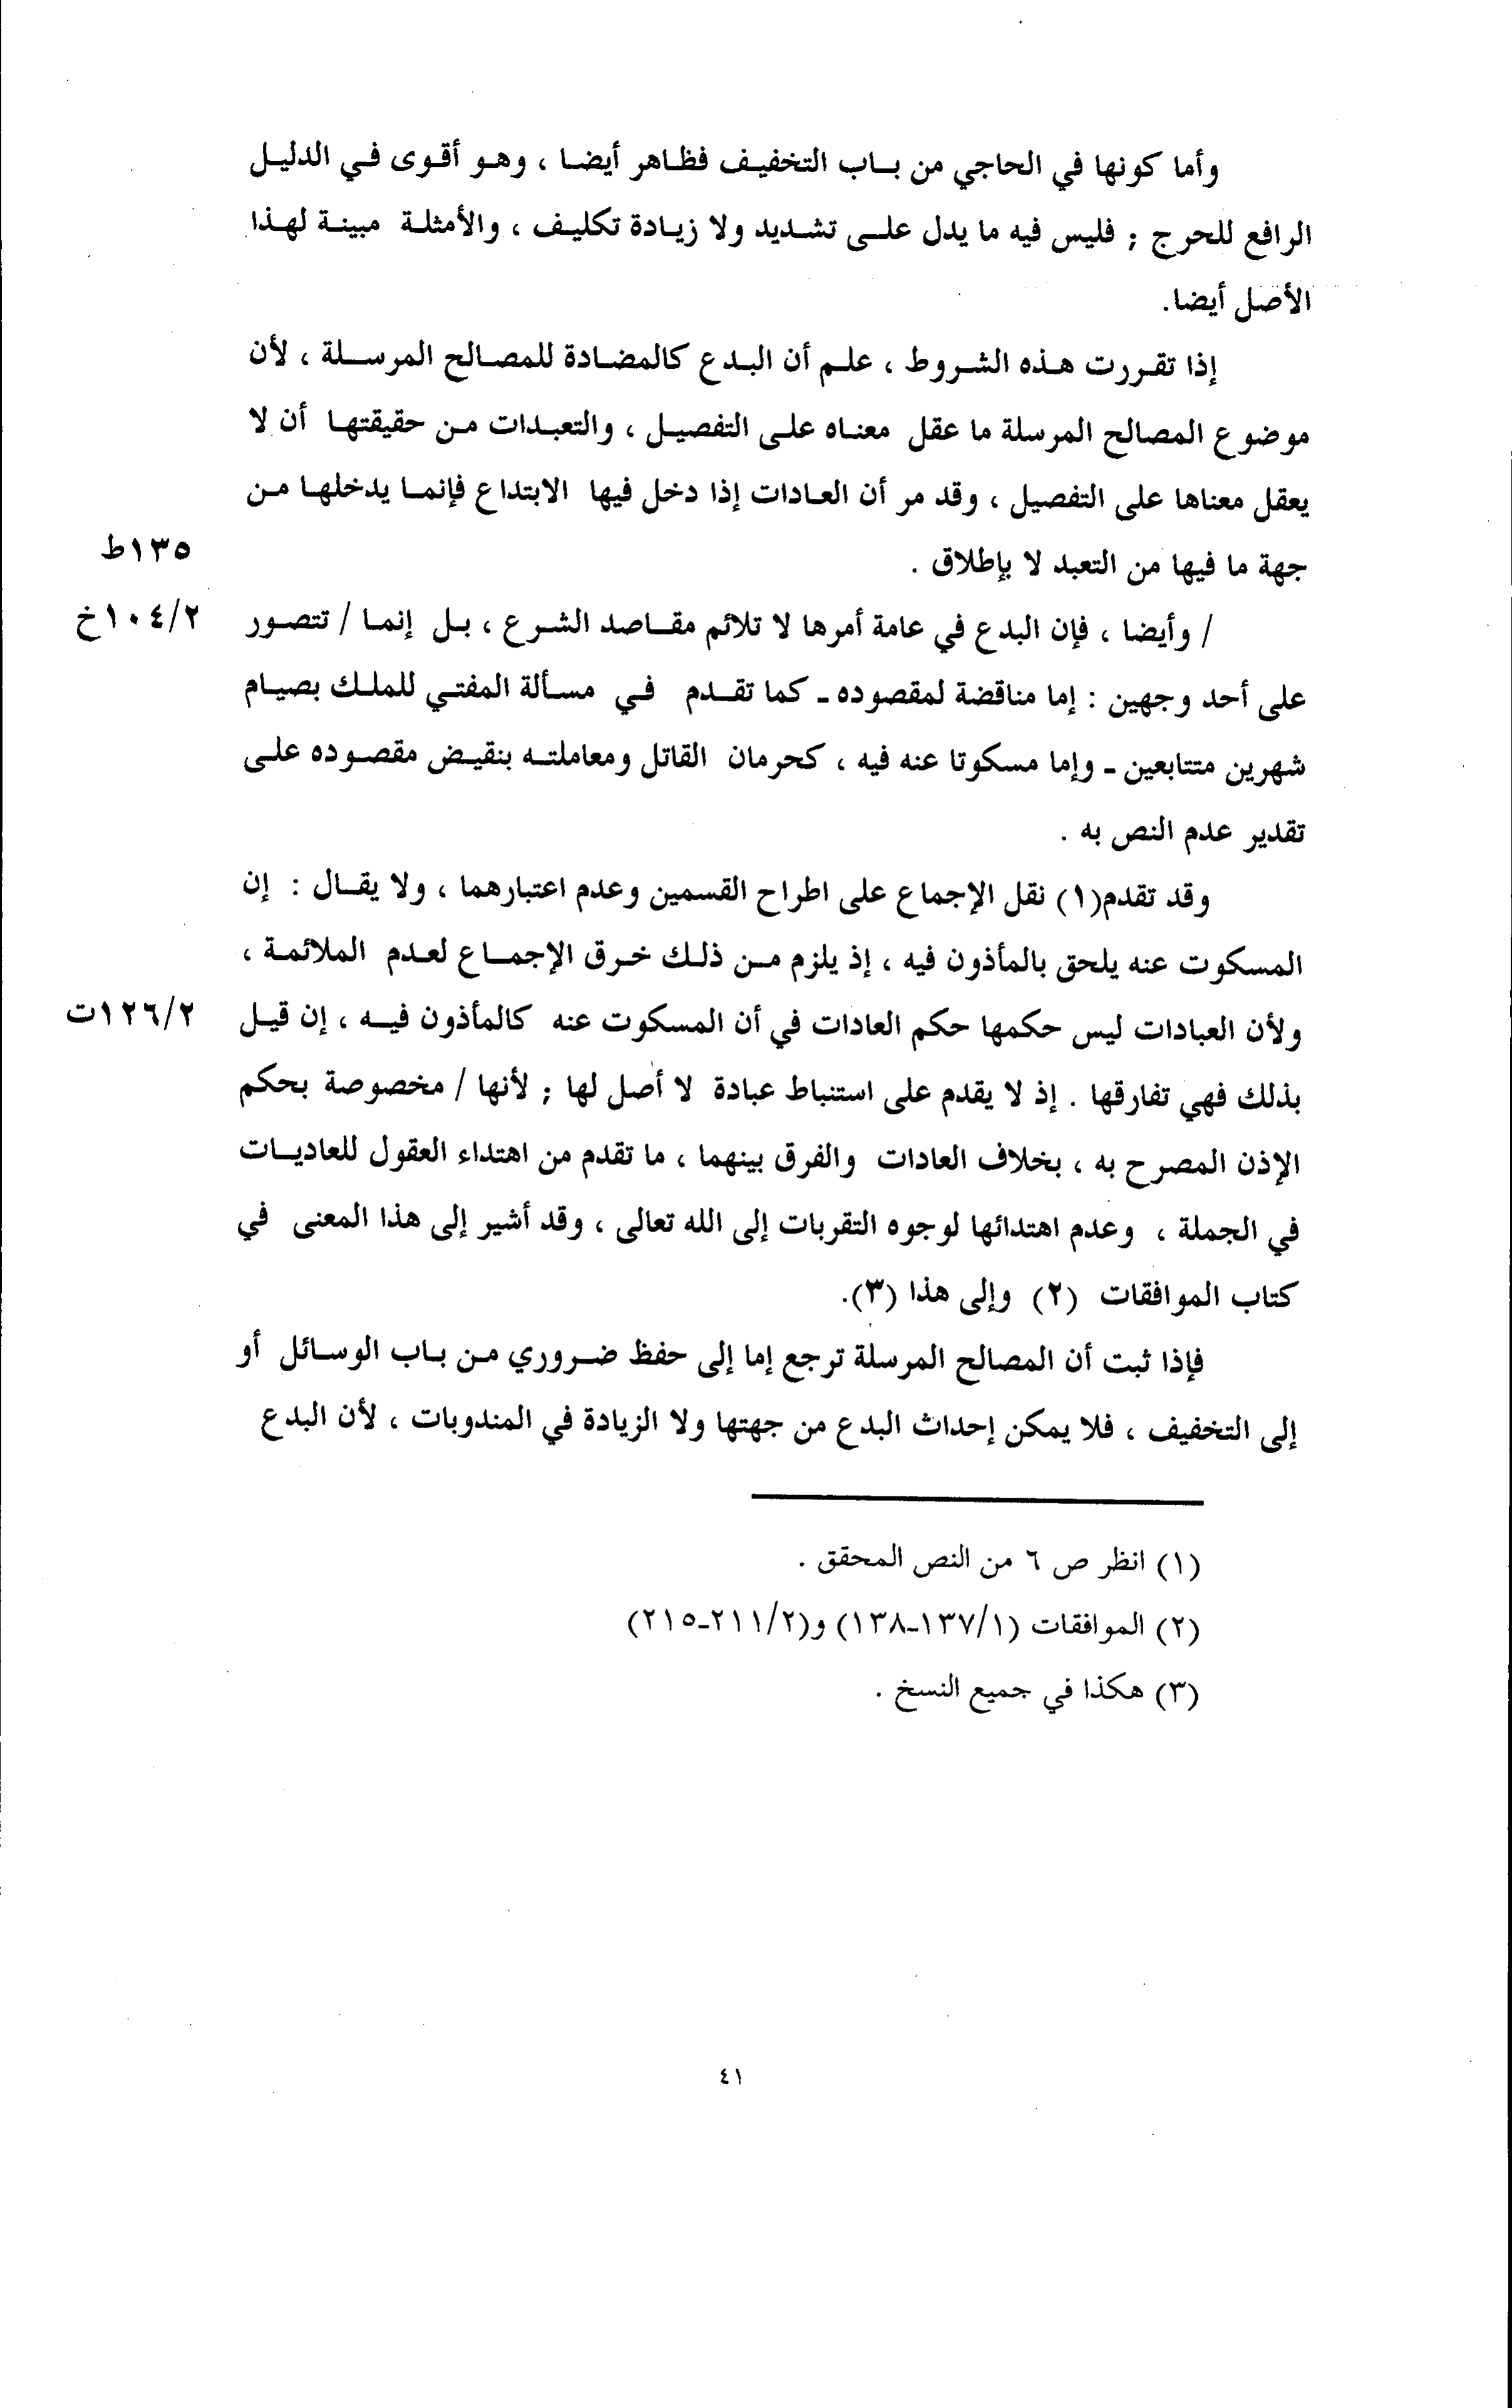 وأما كونها في الحاجي من باب التخفيف فظاهر أيضا ، وهو أقوى في الدليل
الرافع للحرج ; فليس فيه ما يدل على تشديد ولا زيادة تكليف ، والأمثلة مبينة لهذا
الأصل أيضا.
إذا تقررت هذه الشروط ، علم أن البدع كالمضادة للمصالح المرسلة ، لأن
موضوع المصالح المرسلة ما عقل معناه على التفصيل ، والتعبدات من حقيقتها أن لا
يعقل معناها على التفصيل ، وقد مر أن العادات إذا دخل فيها الابتداع فإنما يدخلها من
جهة ما فيها من التعبد لا بإطلاق .
١٣٥ط
/ وأيضا ، فإن البدع في عامة أمرها لا تلائم مقاصد الشرع ، بل إنما / تتصور
١٠٤/٢خ
على أحد وجهين : إما مناقضة لمقصوده - كما تقدم في مسألة المفتي للملك بصيام
شهرين متتابعين - وإما مسكوتا عنه فيه ، كحرمان القاتل ومعاملته بنقيض مقصوده على
تقدير عدم النص به .
وقد تقدم(١) نقل الإجماع على اطراح القسمين وعدم اعتبارهما ، ولا يقال : إن
المسكوت عنه يلحق بالمأذون فيه ، إذ يلزم من ذلك خرق الإجماع لعدم الملائمة ،
ولأن العبادات ليس حكمها حكم العادات في أن المسكوت عنه كالمأذون فيه ، إن قيل
١٢٦/٢ت
بذلك فهي تفارقها . إذ لا يقدم على استنباط عبادة لا أصل لها ; لأنها / مخصوصة بحكم
الإذن المصرح به ، بخلاف العادات والفرق بينهما ، ما تقدم من اهتداء العقول للعاديات
في الجملة ، وعدم اهتدائها لوجوه التقربات إلى الله تعالى ، وقد أشير إلى هذا المعنى في
كتاب الموافقات (٢) وإلى هذا (٣).
فإذا ثبت أن المصالح المرسلة ترجع إما إلى حفظ ضروري من باب الوسائل أو
إلى التخفيف ، فلا يمكن إحداث البدع من جهتها ولا الزيادة في المندوبات ، لأن البدع
(١) انظر ص ٦ من النص المحقق .
(٢) الموافقات (١٣٧/١-١٣٨) و(٢١١/٢-٢١٥)
(٣) هكذا في جميع النسخ .
٤١